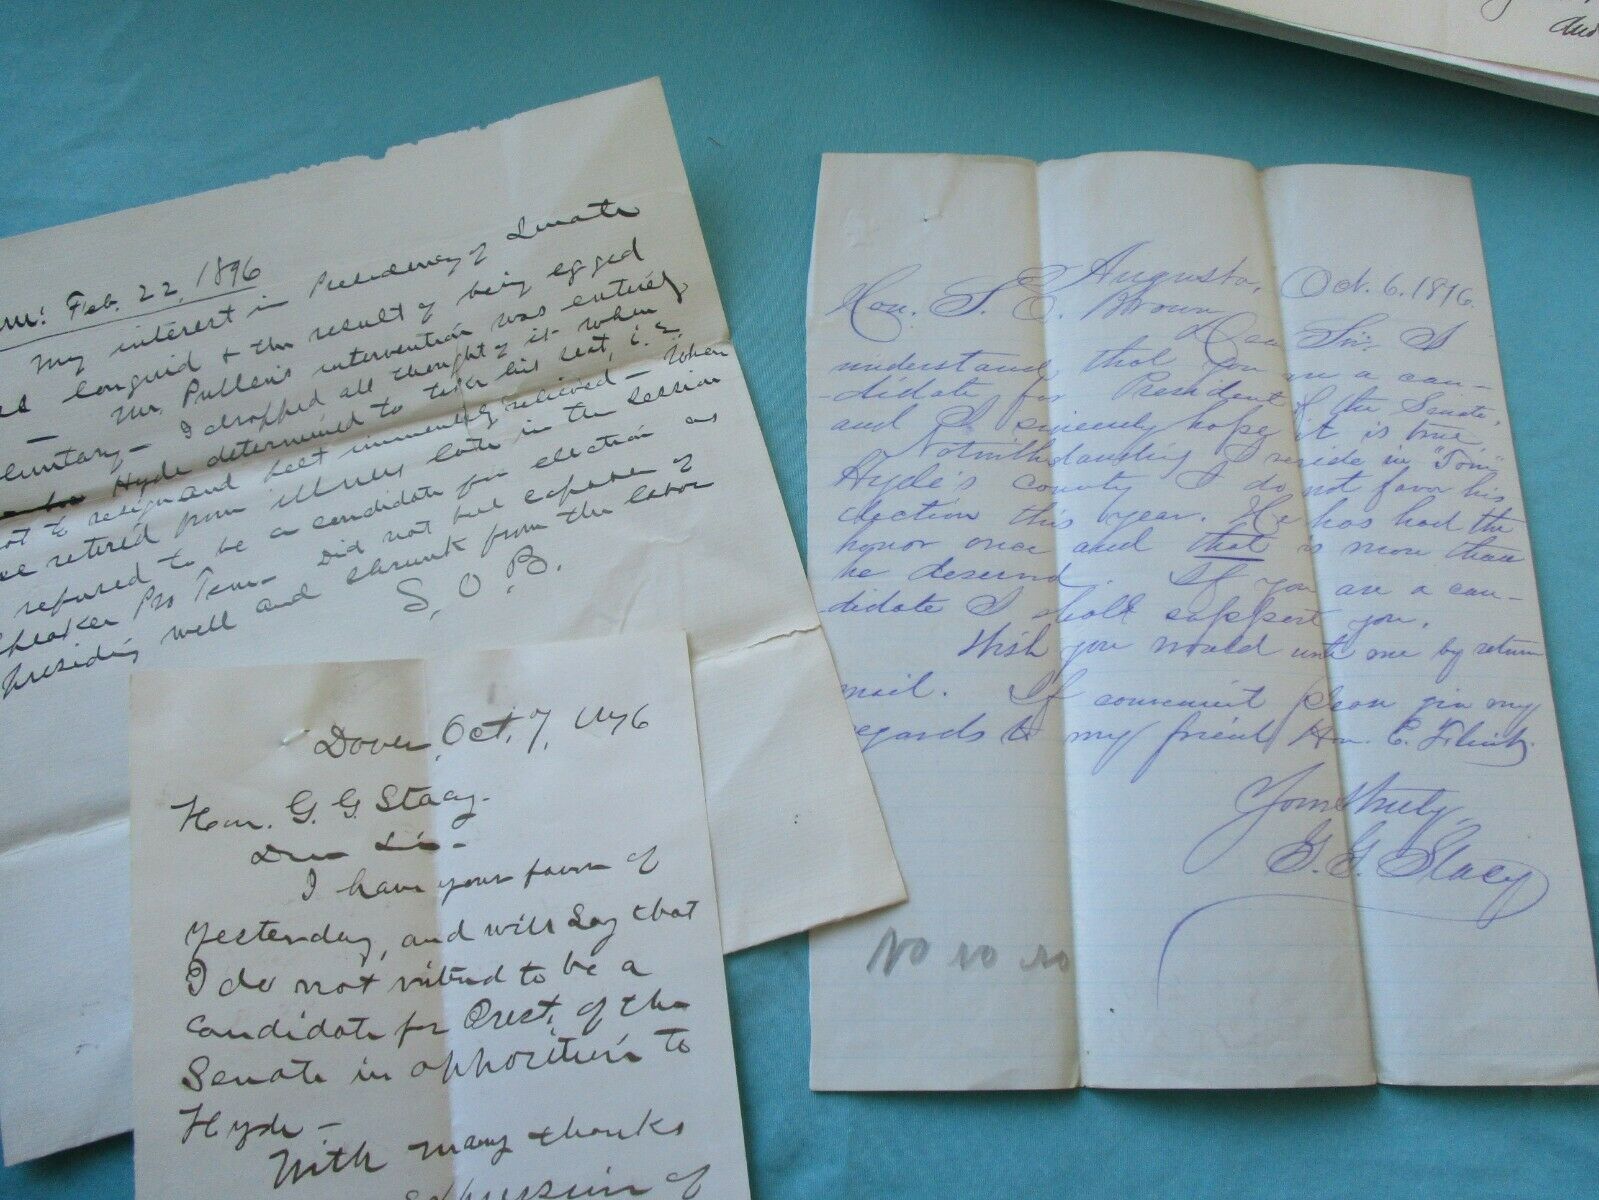 and
um: Feb. 22, 1896
My interest in Presidency of Senate
as languid & the result of being egged
— Mr. Pullen's intervention was entirely
oluntary — I dropped all thought of it when
Hyde determined to take his seat, i.e.
not to resign and felt immensely relieved — When
he retired from illness late in the session
refused to be a candidate for election as
Speaker Pro Tem — Did not feel capable of
presiding well and shrunk from the labor
S. O. B.
Dover, Oct. 7, 1876
Hon. G. G. Stacy.
Dear Sir —
I have your favor of
yesterday, and will say that
I do not intend to be a
candidate for Prest. of the
Senate in opposition to
Hyde —
With many thanks
expression of
Augusta, Oct. 6, 1876.
Hon. S. O. Brown
Dear Sir: I
understand that you are a can-
-didate for President of the Senate,
and I sincerely hope it is true.
Notwithstanding I reside in "Tom"
Hyde's county I do not favor his
election this year. He has had the
honor once and that is more than
he deserved. If you are a can-
didate I shall support you.
Wish you would write me by return
mail. If convenient please give my
regards to my friend Hon. E. Flint.
Yours truly,
G. G. Stacy
No No No